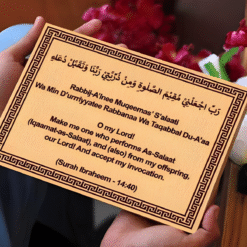 رَبِّ اجْعَلْنِيْ مُقِيْمَ الصَّلٰوةِ وَمِنْ ذُرِّيَّتِيْ رَبَّنَا وَتَقَبَّلْ دُعَآءِ
Rabbij-A'lnee Muqeemas' S'alaati
Wa Min D'urriyyatee Rabbanaa Wa Taqabbal Du-A'aa
O my Lord!
Make me one who performs As-Salaat
(Iqaamat-as-Salaat), and (also) from my offspring,
our Lord! And accept my invocation.
(Surah Ibraheem - 14:40)